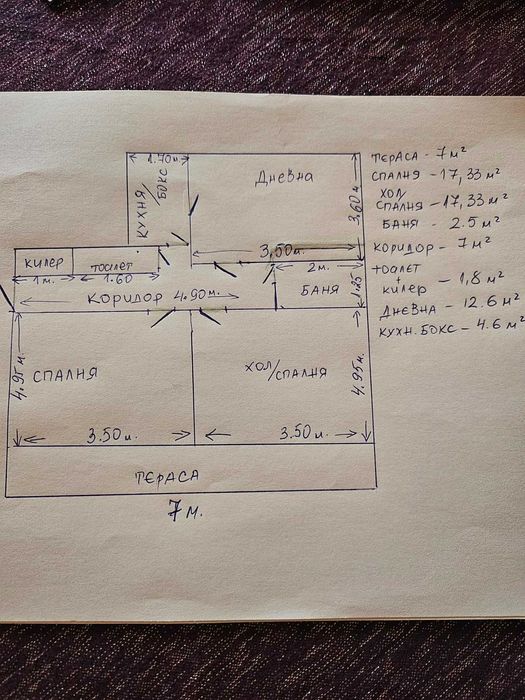 1.70м
КУХНЯ/
БОКС
ДНЕВНА
3,60м
3,50м.
КИЛЕР
ТОАЛЕТ
1м.
1.60
2м.
БАНЯ
1.25
КОРИДОР 4.90м.
4.95м.
СПАЛНЯ
ХОЛ/СПАЛНЯ
4.95м.
3.50м.
3.50м.
ТЕРАСА
7м.
ТЕРАСА - 7м²
СПАЛНЯ - 17,33м²
ХОЛ/
СПАЛНЯ - 17,33м²
БАНЯ - 2.5м²
КОРИДОР - 7м²
ТОАЛЕТ
+
КИЛЕР - 1,8м²
ДНЕВНА - 12.6м²
КУХН.БОКС - 4.6м²